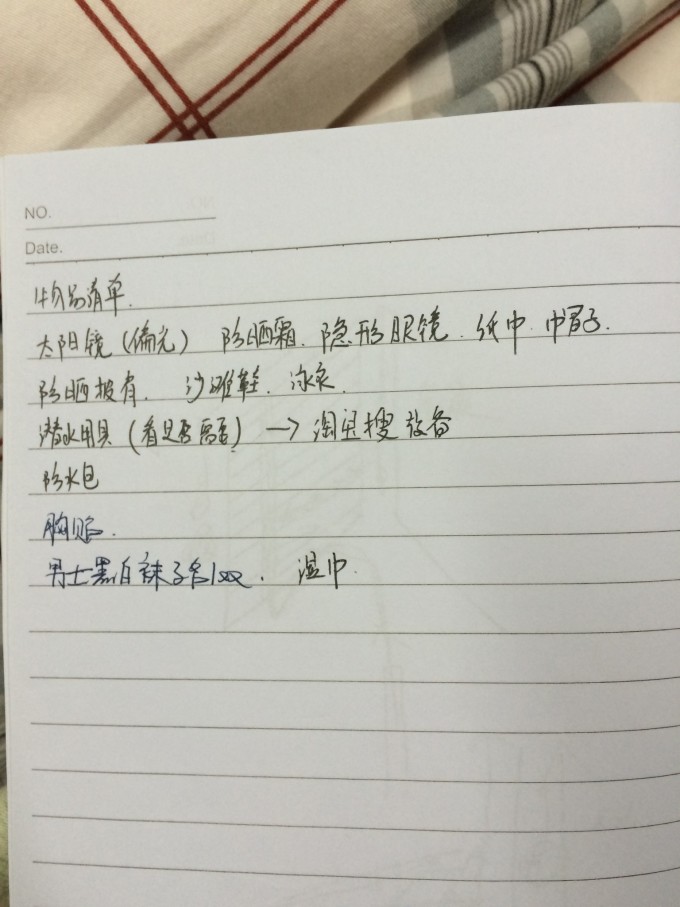 NO.
Date.
物品清单.
太阳镜(偏光) 防晒霜. 隐形眼镜. 纸巾. 帽子.
防晒披肩. 沙滩鞋. 泳衣.
潜水用具(看是否需要) → 淘宝搜设备
防水包
胸贴.
男士黑白袜子各1双. 湿巾.